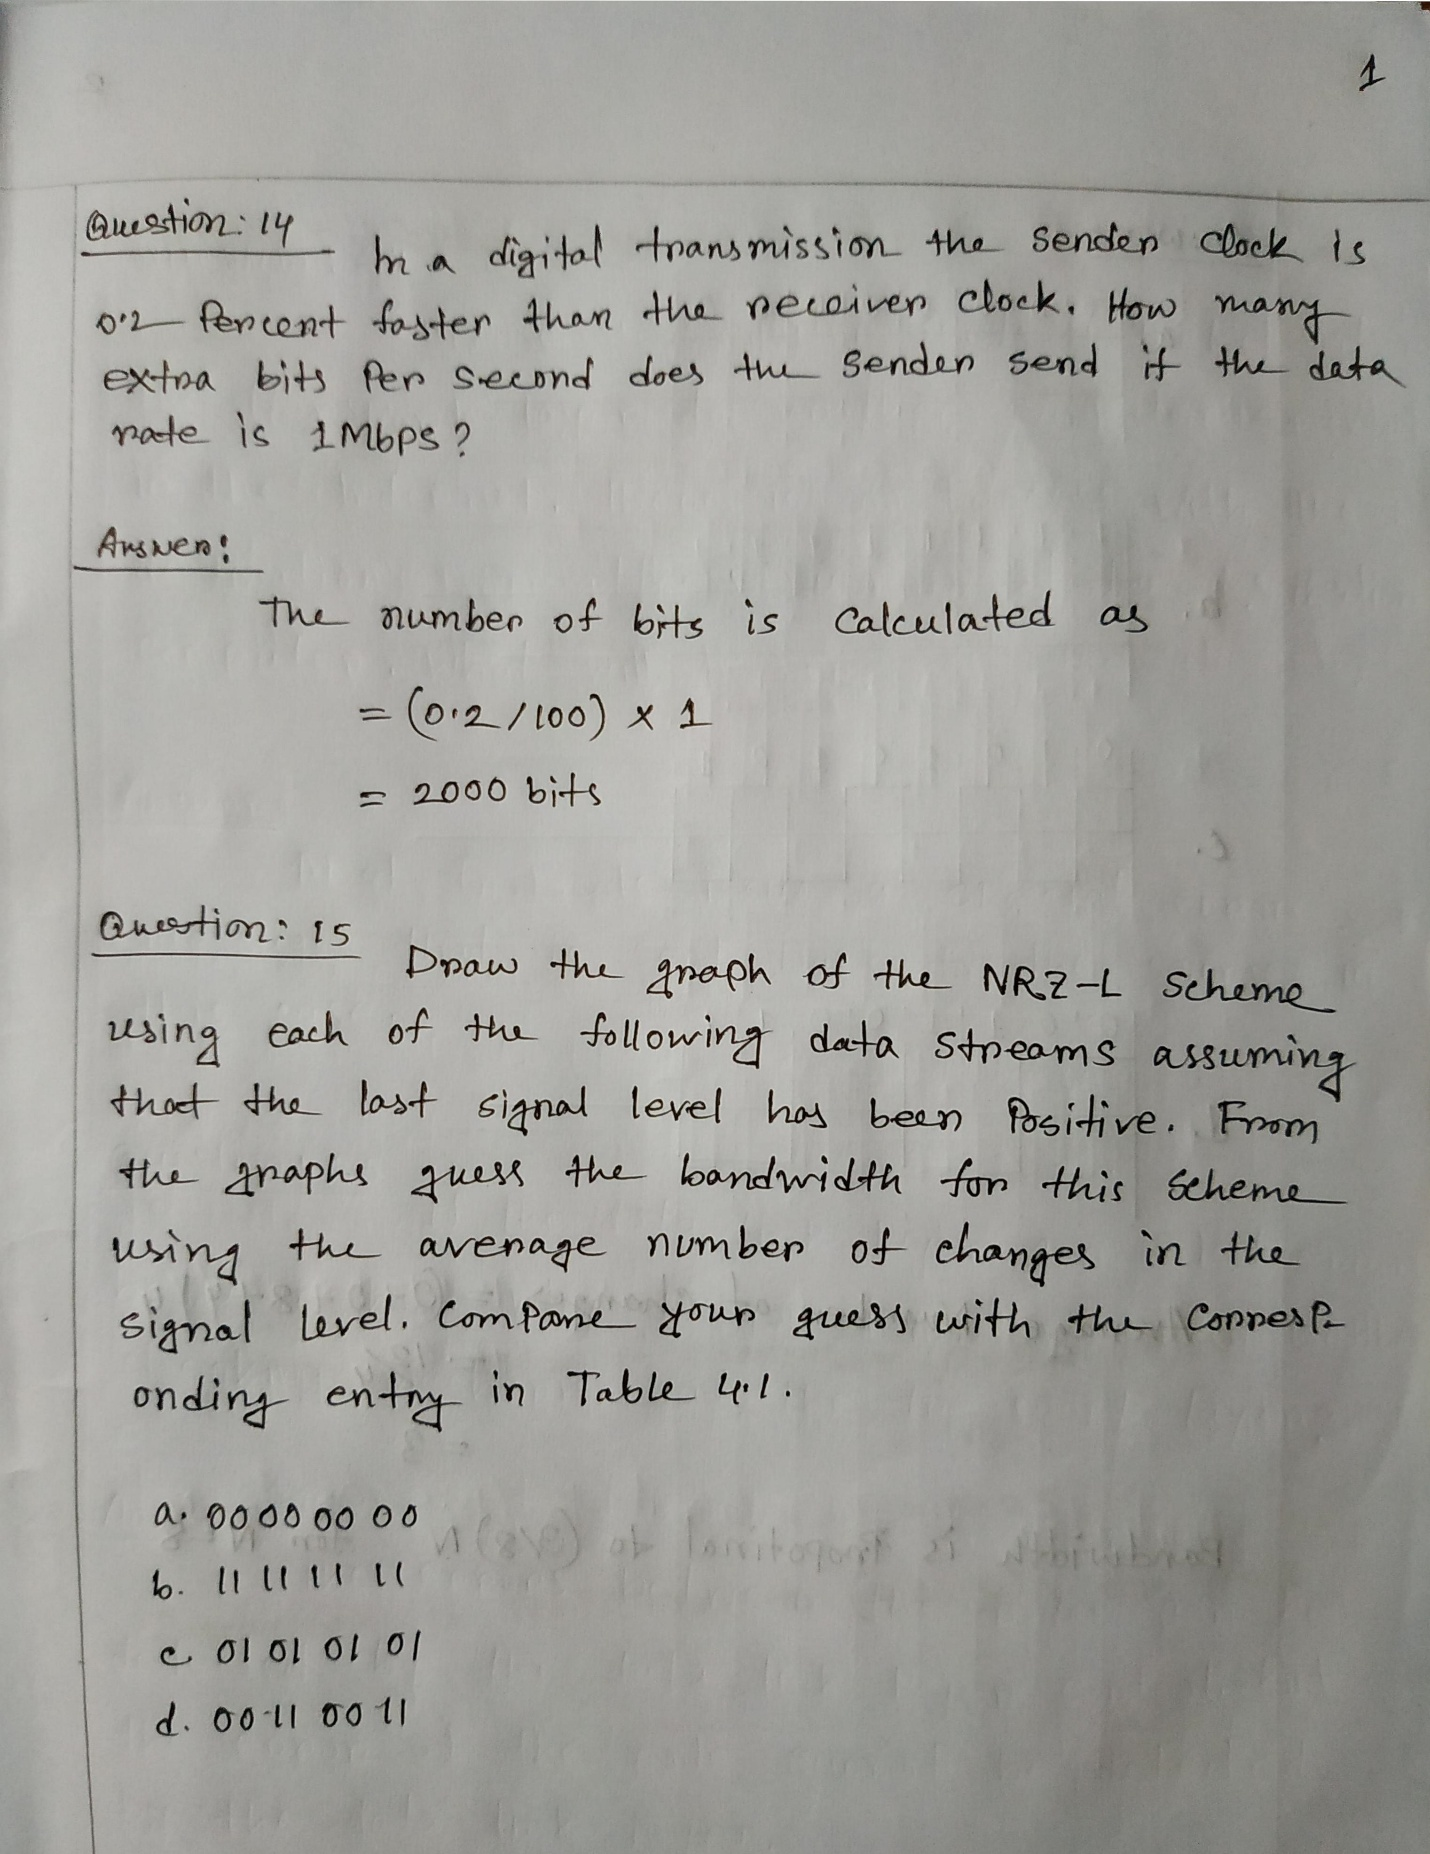 1
Question: 14
In a digital transmission the sender clock is
0.2 Percent faster than the receiver clock. How many
extra bits Per second does the sender send if the data
rate is 1Mbps?
Answer:
The number of bits is calculated as
= (0.2/100) x 1
= 2000 bits
Question: 15
Draw the graph of the NRZ-L Scheme
using each of the following data streams assuming
that the last signal level has been Positive. From
the graphs guess the bandwidth for this Scheme
using the average number of changes in the
Signal level. Compare your guess with the Corresp-
onding entry in Table 4.1.
a. 00 00 00 00
b. 11 11 11 11
c 01 01 01 01
d. 00 11 00 11